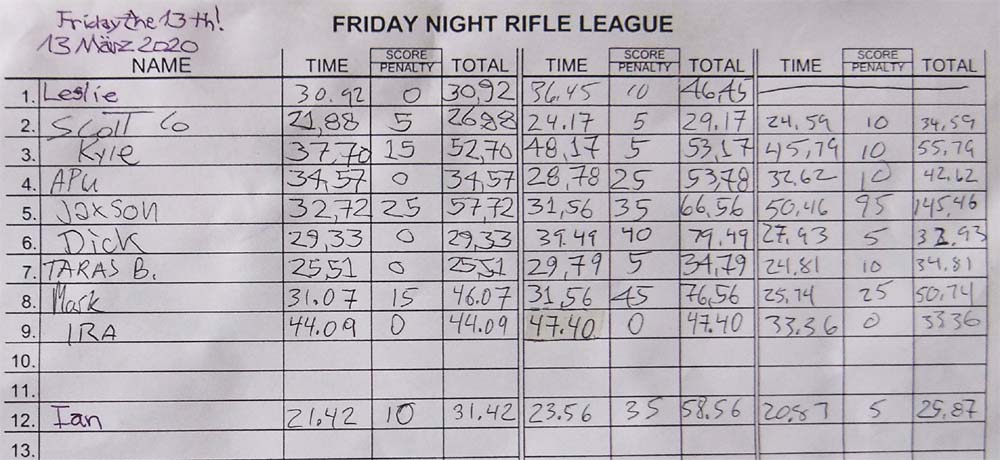 Friday the 13th!
FRIDAY NIGHT RIFLE LEAGUE
13 März 2020
NAME TIME SCORE PENALTY TOTAL TIME SCORE PENALTY TOTAL TIME SCORE PENALTY TOTAL
1. Leslie 30.92 0 30,92 36.45 10 46,45
2. Scott Co 21,88 5 26,88 24.17 5 29.17 24.59 10 34.59
3. Kyle 37,70 15 52,70 48,17 5 53,17 45,79 10 55.79
4. APU 34,57 0 34,57 28,78 25 53,78 32,62 10 42,62
5. Jaxson 32,72 25 57,72 31,56 35 66,56 50,46 95 145,46
6. Dick 29,33 0 29,33 39.49 40 79,49 27,93 5 32,93
7. TARAS B. 25,51 0 25,51 29,79 5 34,79 24.81 10 34.81
8. Mark 31.07 15 46.07 31,56 45 76,56 25.74 25 50,74
9. IRA 44.09 0 44.09 47.40 0 47.40 33.36 0 33.36
10.
11.
12. Ian 21.42 10 31.42 23.56 35 58.56 20.87 5 25.87
13.